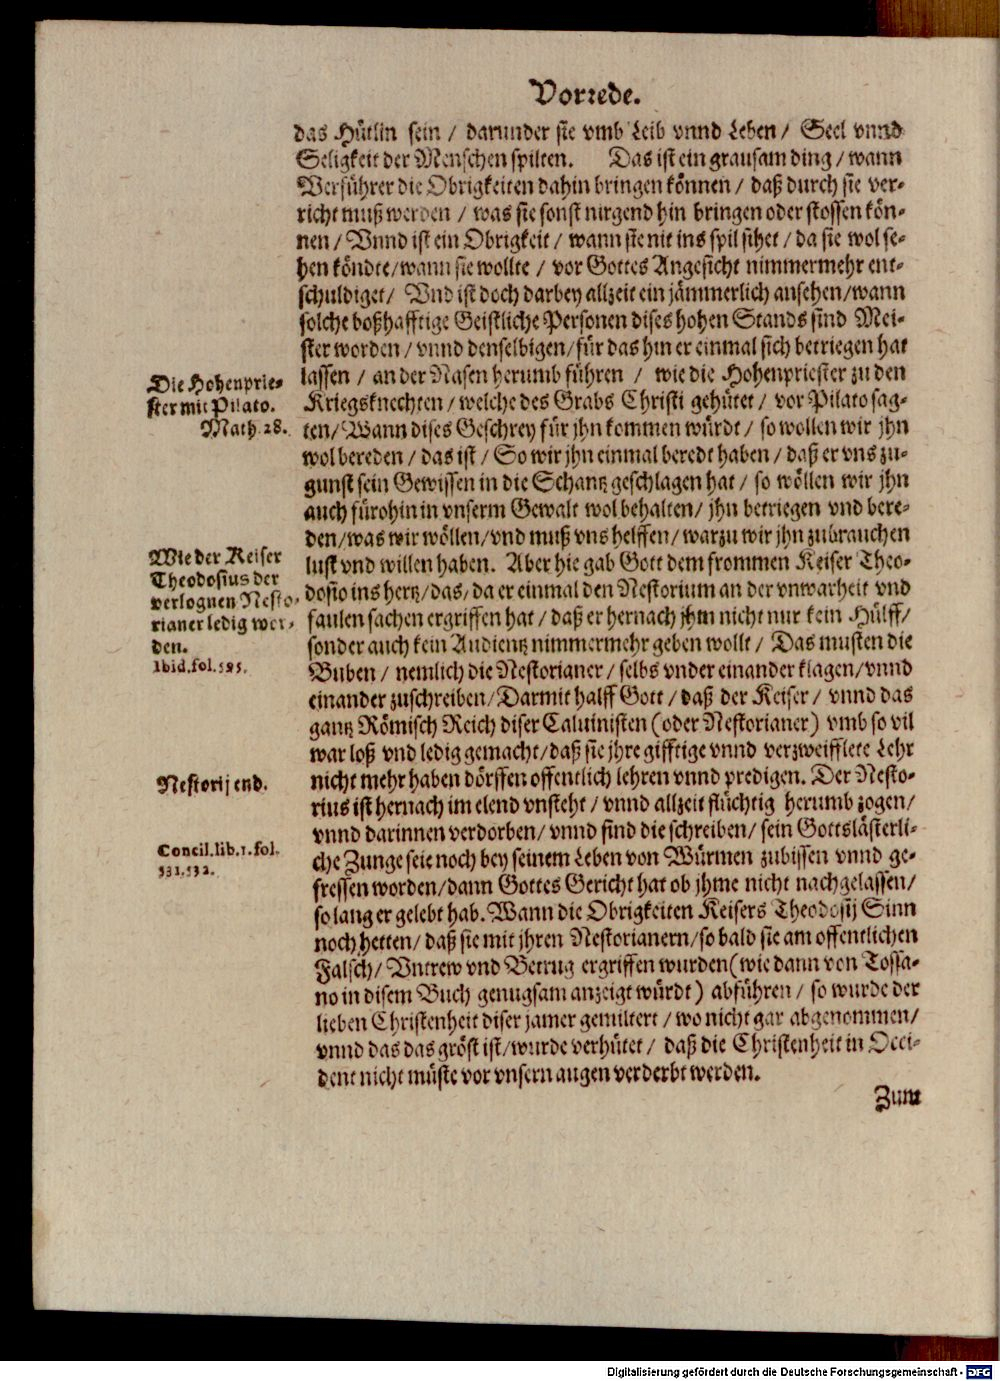 Vorrede.
das Hütlin sein / darunder sie vmb Leib vnnd Leben / Seel vnnd
Seligkeit der Menschen spilten. Das ist ein grausam ding / wann
Verführer die Obrigkeiten dahin bringen können / daß durch sie ver-
richt muß werden / was sie sonst nirgend hin bringen oder stossen kön-
nen / Vnnd ist ein Obrigkeit / wann sie nit ins spil sihet / da sie wol se-
hen köndte / wann sie wollte / vor Gottes Angesicht nimmermehr ent-
schuldiget / Vnd ist doch darbey allzeit ein jämmerlich ansehen / wann
solche boßhafftige Geistliche Personen dises hohen Stands sind Mei-
ster worden / vnnd denselbigen / für das hin er einmal sich betriegen hat
lassen / an der Nasen herumb führen / wie die Hohenpriester zu den
Kriegsknechten / welche des Grabs Christi gehütet / vor Pilato sag-
ten / Wann dises Geschrey für jhn kommen würdt / so wollen wir jhn
wol bereden / das ist / So wir jhn einmal beredt haben / daß er vns zu-
gunst sein Gewissen in die Schantz geschlagen hat / so wöllen wir jhn
auch fürohin in vnserm Gewalt wol behalten / jhn betriegen vnd bere-
den / was wir wöllen / vnd muß vns helffen / warzu wir jhn zubrauchen
lust vnd willen haben. Aber hie gab Gott dem frommen Keiser Theo-
dosio ins hertz / das / da er einmal den Nestorium an der vnwarheit vnd
faulen sachen ergriffen hat / daß er hernach jhm nicht nur kein Hülff /
sonder auch kein Audientz nimmermehr geben wolt / Das musten die
Buben / nemlich die Nestorianer / selbs vnder einander klagen / vnnd
einander zuschreiben / Darmit halff Gott / daß der Keiser / vnnd das
gantz Römisch Reich diser Caluinisten (oder Nestorianer) vmb so vil
war loß vnd ledig gemacht / daß sie jhre gifftige vnnd verzweifflete Lehr
nicht mehr haben dörffen offentlich lehren vnnd predigen. Der Nesto-
rius ist hernach im elend vnsteht / vnnd allzeit flüchtig herumb zogen /
vnnd darinnen verdorben / vnnd sind die schreiben / sein Gottslästerli-
che Zunge seie noch bey seinem Leben von Würmen zubissen vnnd ge-
fressen worden / dann Gottes Gericht hat ob jhme nicht nachgelassen /
so lang er gelebt hab. Wann die Obrigkeiten Keisers Theodosij Sinn
noch hetten / daß sie mit jhren Nestorianern / so bald sie am offentlichen
Falsch / Vntrew vnd Betrug ergriffen wurden (wie dann von Tossa-
no in disem Buch genugsam anzeigt würdt) abführen / so wurde der
lieben Christenheit diser jamer gemiltert / wo nicht gar abgenommen /
vnnd das das gröst ist / wurde verhütet / daß die Christenheit in Occi-
dent nicht müste vor vnsern augen verderbt werden.
Zum
Die Hohenprie-
ster mit Pilato.
Math. 28.
Wie der Keiser
Theodosius der
verlognen Nesto-
rianer ledig wor-
den.
Ibid. fol. 585.
Nestorij end.
Concil. lib. 1. fol.
531. 532.
Digitalisierung gefördert durch die Deutsche Forschungsgemeinschaft - DFG